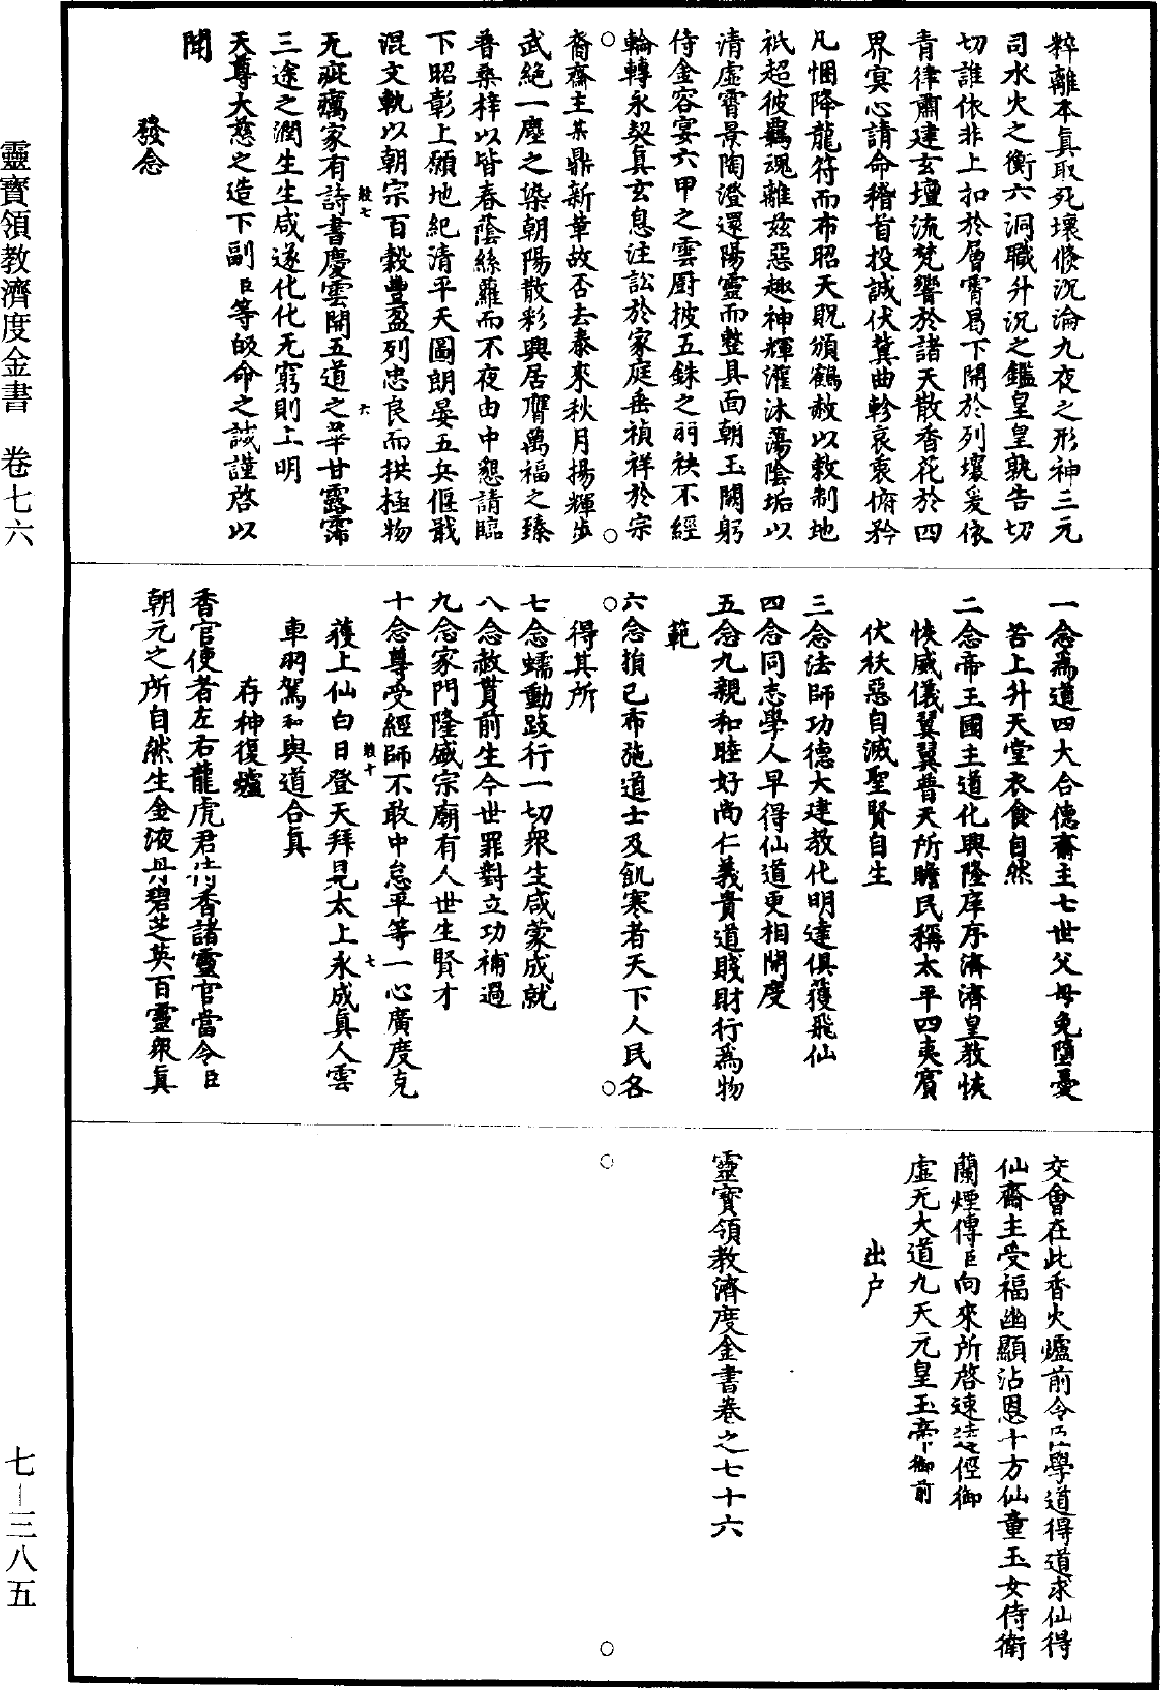 粹離本真取死壞倐沉淪九夜之形神三元
司水火之衡六洞職升沉之鑑皇皇孰告切
切誰依非上扣於層霄曷下開於列壤爰依
青律肅建玄壇流梵響於諸天散香花於四
界冥心請命稽首投誠伏冀曲軫哀衷俯矜
凡悃降龍符而布昭天貺頒鶴赦以敕制地
祇超彼羈魂離兹惡趣神輝灌沐蕩陰垢以
清虛霄景陶澄還陽靈而整具面朝玉闕躬
侍金容宴六甲之雲厨披五銖之羽袂不經
輪轉永契真玄息注訟於家庭垂禎祥於宗
裔齋主某鼎新革故否去泰來秋月揚輝步
武絶一塵之染朝陽散彩興居膺萬福之臻
普桑梓以皆春蔭絲蘿而不夜由中懇請臨
下昭彰上願地紀清平天圖朗晏五兵偃戢
混文軌以朝宗百穀豐盈列忠良而拱極物
无疵癘家有詩書慶雲開五道之華甘露霈
三途之潤生生咸遂化化无窮則上明
天尊大慈之造下副臣等皈命之誠謹啓以
聞
發念
一念爲道四大合德齋主七世父母免墮憂
苦上升天堂衣食自然
二念帝王國主道化興隆庠序濟濟皇教恢
恢威儀翼翼普天所瞻民稱太平四夷賓
伏袄惡自滅聖賢自生
三念法師功德大建教化明達俱獲飛仙
四念同志學人早得仙道更相開度
五念九親和睦好尚仁義貴道賤財行爲物
範
六念損己布施道士及飢寒者天下人民各
得其所
七念蠕動跂行一切衆生咸蒙成就
八念赦貰前生今世罪對立功補過
九念家門隆盛宗廟有人世生賢才
十念尊受經師不敢中怠平等一心廣度克
獲上仙白日登天拜見太上永成真人雲
車羽駕和與道合真
存神復爐
香官使者左右龍虎君侍香諸靈官當令臣
朝元之所自然生金液丹碧芝英百靈衆真
交會在此香火爐前令臣學道得道求仙得
仙齋主受福幽顯沾恩十方仙童玉女侍衛
蘭煙傳臣向來所啓速達徑御
虛无大道九天元皇玉帝御前
出户
靈寶領教濟度金書卷之七十六
靈寶領教濟度金書 卷七六
七—三八五